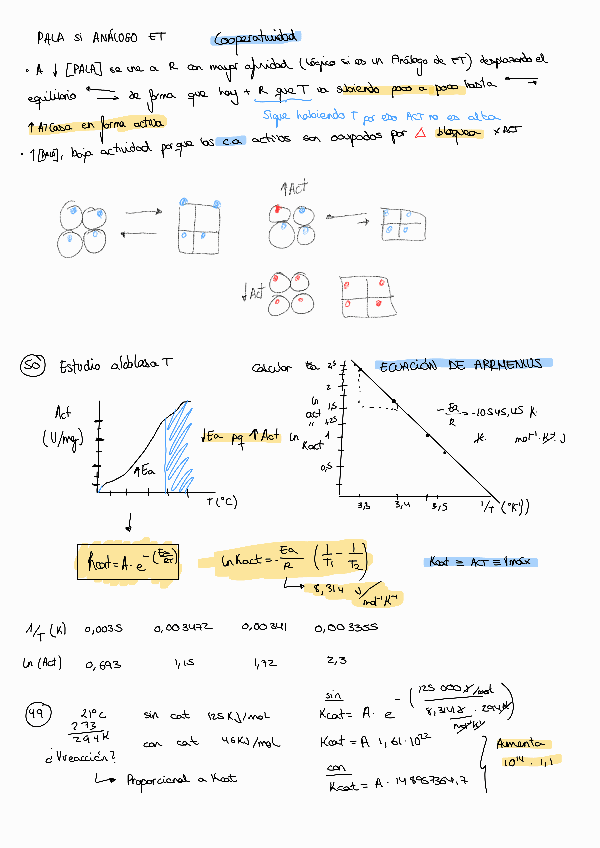 PALA SI ANÁLOGO ET Cooperatividad
· A ↓ [PALA] se une a R con mayor afinidad (Lógico si es un Análogo de ET) desplazando el
equilibrio de forma que hay + R que T va subiendo poco a poco hasta
↑ ATCasa en forma activa Sigue habiendo T por eso ACT no es alta
· ↑[PALA], baja actividad porque los c.a activos son ocupados por △ bloquea x ACT
↑Act
↓Act
50 Estudio T
Calcular Ea
ECUACIÓN DE ARRHENIUS
Act
(U/mg)
↑Ea
↓Ea pq ↑Act
T (°C)
ln
act
"
ln
Kcat
2,5
2
1,5
1,25
1
0,5
3,3 3,4 3,5 1/T (°K)
-Ea/R = -10545,45 K
K. mol⁻¹·K⁻¹·J
Kcat = A· e^-(Ea/RT)
ln Kact = -Ea/R (1/T1 - 1/T2)
8,314 J/mol⁻¹K⁻¹
Kcat ≡ ACT ≡ Vmáx
1/T (K) 0,0035 0,003472 0,00341 0,003355
ln (Act) 0,693 1,15 1,72 2,3
49 21°C sin cat 125 KJ/mol
273
294K con cat 46KJ/mol
¿Vreacción?
Proporcional a Kcat
sin
Kcat = A· e^-(125 000 J/mol / 8,314 J/mol K · 294K)
Kcat = A 1,61·10²²
con
Kcat = A· 148957364,7
Aumenta
10¹⁴ · 1,1